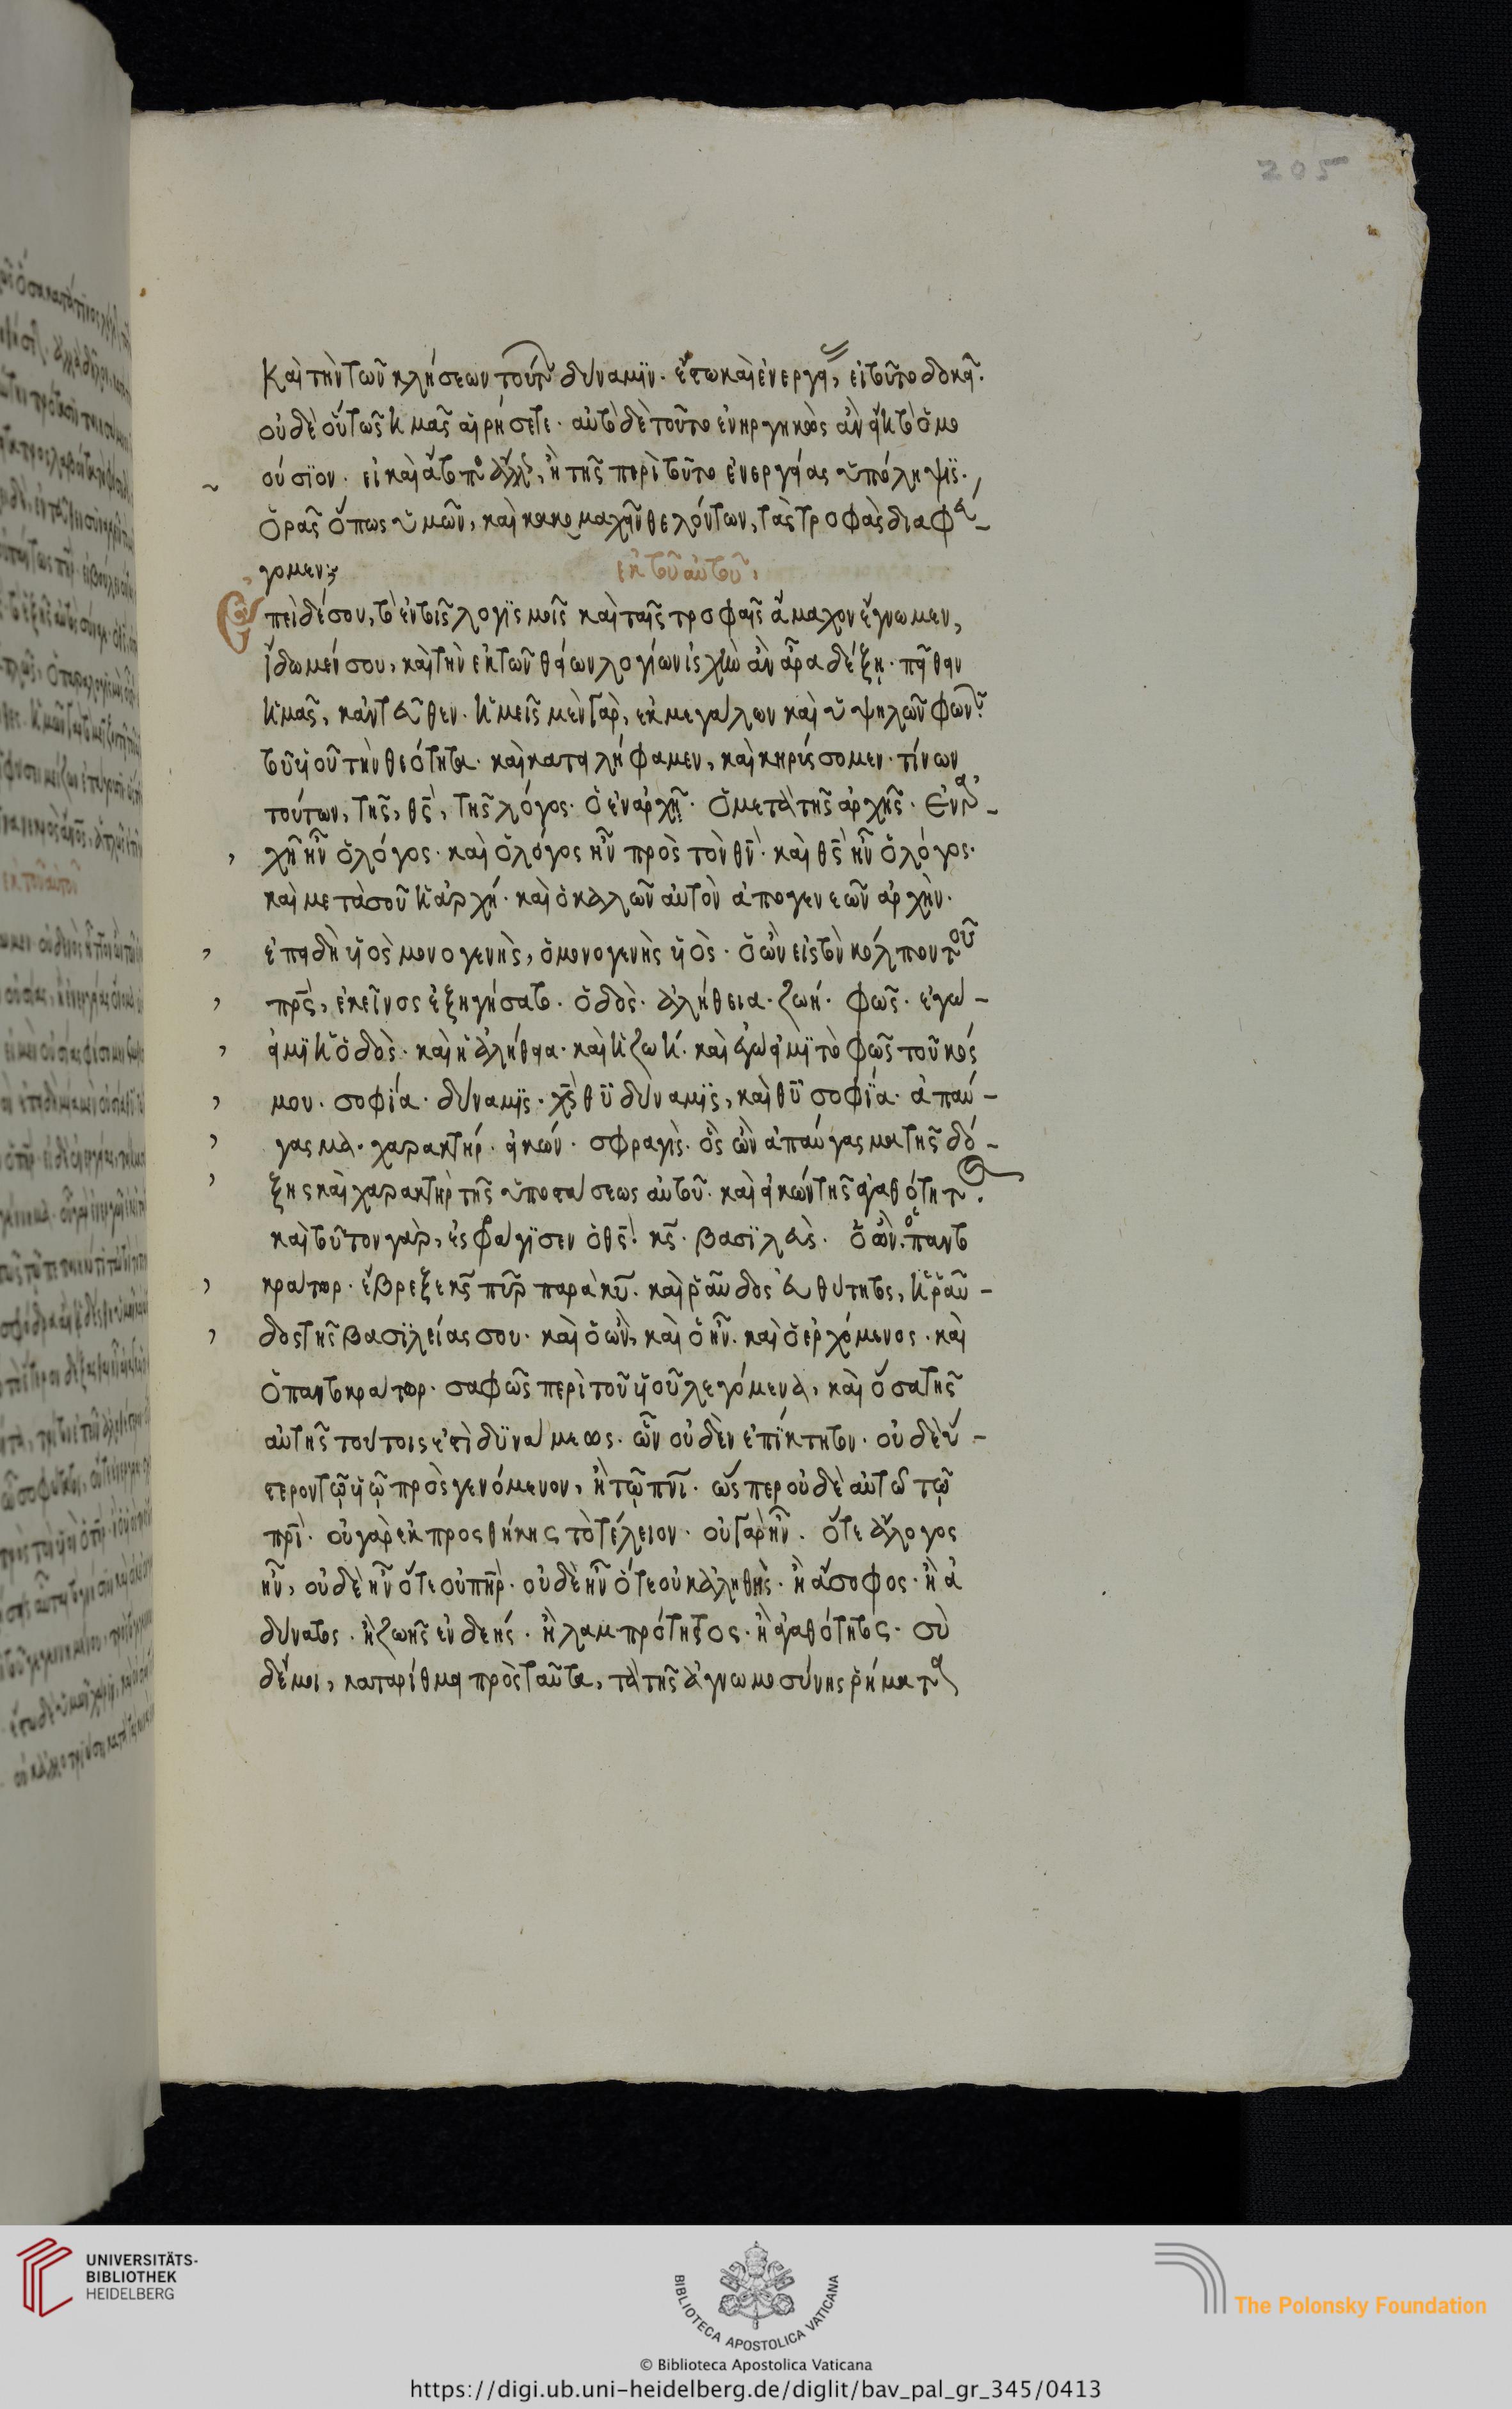 205
καὶ τὴν τῶν κλήσεων τούτων δύναμϊν. ἔστω καὶ ἐνεργεί, εἰ τοῦτο δοκεῖ.
οὐδὲ οὕτως ἡμᾶς αἱρήσετε. αὐτὸ δὲ τοῦτο ἐνηργηκὼς ἂν εἴη τὸ ὁμο
ούσϊον. εἰ καὶ ἄτοπον ἄλλως, ἡ τῆς περὶ τοῦτο ἐνεργείας ὑπόληψϊς.
ὁρᾶς ὅπως ὑμῶν, καὶ κακομαχεῖν θελόντων, τὰς τροφὰς διαφεύ-
γομεν;
ἐκ τοῦ αὐτοῦ,
Επεὶ δέ σου, τὸ ἐν τοῖς λογϊσμοῖς καὶ ταῖς τροφαῖς ἄμαχον ἔγνωμεν,
ἴδωμέν σου, καὶ τὴν ἐκ τῶν θείων λογίων ἰσχὺν ἂν ἄρα δέξῃ. πείθειν
ἡμᾶς, κἀντεῦθεν. ἡμεῖς μὲν γὰρ, ἐκ μεγάλων καὶ ὑψηλῶν φωνῶν.
τοῦ ὑοῦ τὴν θεότητα. καὶ κατειλήφαμεν, καὶ κηρύσσομεν. τίνων
τούτων, τῆς, θς, τῆς λόγος. ὁ ἐν ἀρχῇ. ὁ μετὰ τῆς ἀρχῆς. Ἐν ἀρ-
χῇ ἦν ὁ λόγος. καὶ ὁ λόγος ἦν πρὸς τὸν θν. καὶ θς ἦν ὁ λόγος.
καὶ μετὰ σοῦ ἡ ἀρχή. καὶ ὁ καλῶν αὐτὸν ἀπο γενεῶν ἀρχὴν.
ἐπειδὴ ὑὸς μονογενὴς, ὁ μονογενὴς ὑὸς. ὁ ὢν εἰς τὸν κόλπον τοῦ
πρς, ἐκεῖνος ἐξηγήσατο. ὁδὸς. ἀλήθεια. ζωή. φῶς. ἐγώ-
εἰμϊ ἡ ὁδὸς. καὶ ἡ ἀλήθεια. καὶ ἡ ζωή. καὶ ἐγώ εἰμϊ τὸ φῶς τοῦ κόσ
μου. σοφία. δύναμϊς. χς θυ δύναμϊς, καὶ θυ σοφϊα. ἀπαύ-
γασμα. χαρακτήρ. εἰκών. σφραγὶς. ὃς ὢν ἀπαύγασμα τῆς δό-
ξης καὶ χαρακτὴρ τῆς ὑποστάσεως αὐτοῦ. καὶ εἰκὼν τῆς ἀγαθότητος.
καὶ τοῦτον γὰρ, ἐσφάγϊσεν ὁ θς. κς. βασϊλεὺς. ὁ ὢν. ὁ παντο
κράτορ. ἔβρεξε κς πῦρ παρὰ κυ. καὶ ῥάβδος εὐθύτητος, ἡ ῥάβ-
δος τῆς βασϊλείας σου. καὶ ὁ ὢν, καὶ ὁ ἦν. καὶ ὁ ἐρχόμενος. καὶ
ὁ παντοκράτορ. σαφῶς περὶ τοῦ ὑοῦ λεγόμενα, καὶ ὅσα τῆς
αὐτῆς τούτοις ἐστὶ δϋνάμεως. ὧν οὐδὲν ἐπίκτητον. οὐδὲ ὕ-
στερον τῷ ὑῷ προσγενόμενον, ἢ τῷ πνι. ὥσπερ οὐδὲ αὐτῶ τῷ
πρι. οὐ γὰρ ἐκ προσθήκης τὸ τέλειον. οὐ γὰρ ἦν. ὅτε ἄλογος
ἦν, οὐδὲ ἦν ὅτε οὐ πηρ. οὐδὲ ἦν ὅτε οὐκ ἀληθὴς. ἢ ἄσοφος. ἢ ἀ
δύνατος. ἢ ζωῆς ἐνδεής. ἢ λαμπρότητος. ἢ ἀγαθότητος. σὺ
δέ μοι, καταρίθμει πρὸς ταῦτα, τὰ τῆς ἀγνωμοσύνης ῥήματα
UNIVERSITÄTS-
BIBLIOTHEK
HEIDELBERG
BIBLIOTECA APOSTOLICA VATICANA
The Polonsky Foundation
© Biblioteca Apostolica Vaticana
https://digi.ub.uni-heidelberg.de/diglit/bav_pal_gr_345/0413